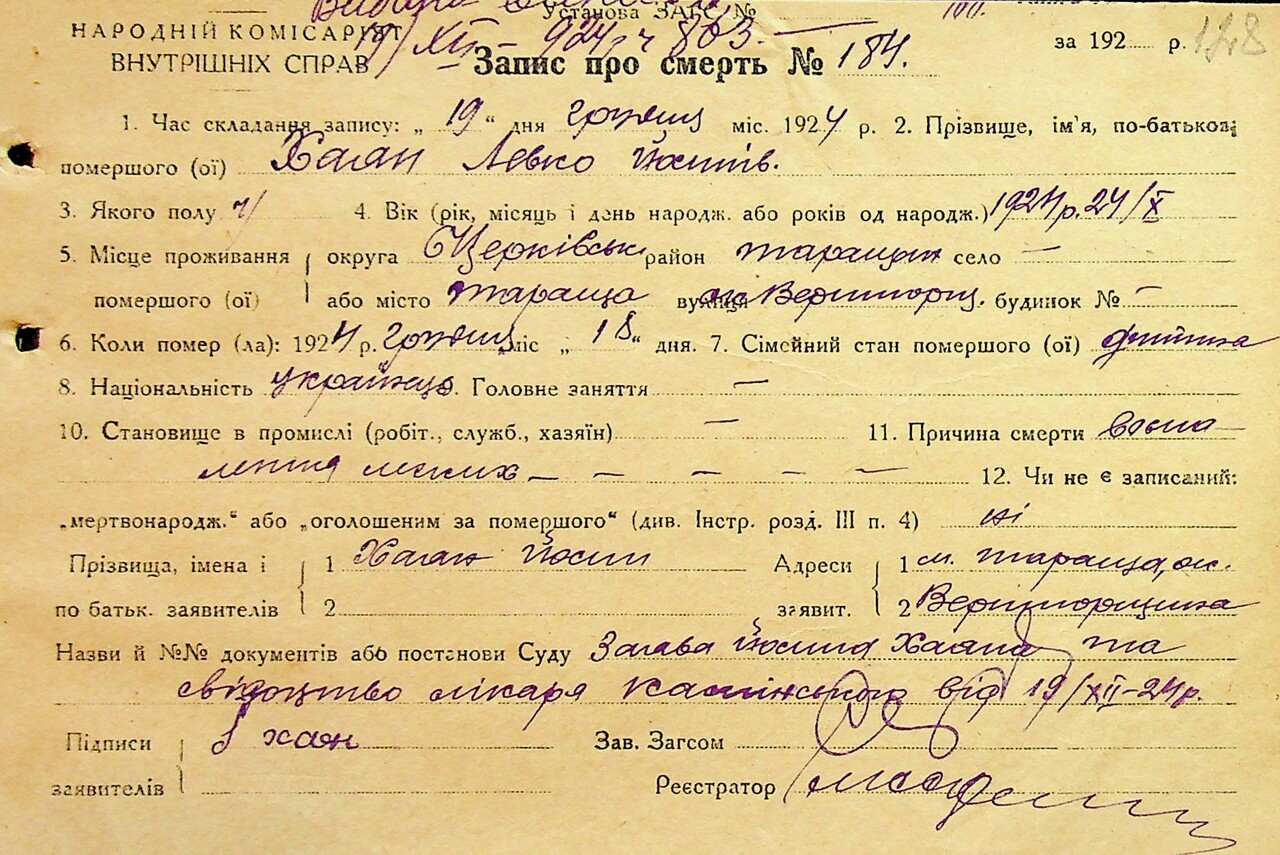 Установа ЗАГС №
НАРОДНІЙ КОМІСАРІЯТ
ВНУТРІШНІХ СПРАВ
19/XII – 924 р ч 803. —
за 192 р. 128
Запис про смерть № 184.
1. Час складання запису: „ 19 “ дня грудня міс. 1924 р. 2. Прізвище, ім'я, по-батькові
помершого (ої) Хаган Левко Йосипів.
3. Якого полу ч/ 4. Вік (рік, місяць і день народж. або років од народж.) 1924 р. 24/X
5. Місце проживання округа БЦерківськ район таращан село —
помершого (ої) або місто Тараща вулиця будинок № —
6. Коли помер (ла): 1924 р. грудня міс „ 18 “ дня. 7. Сімейний стан помершого (ої) дитина
8. Національність українець. Головне заняття —
10. Становище в промислі (робіт., служб., хазяїн) — 11. Причина смерти воспа-
лення легких – – – – – 12. Чи не є записаний:
„мертвонародж.“ або „оголошеним за помершого“ (див. Інстр. розд. III п. 4) ні
Прізвища, імена і 1 Хаган Йосип Адреси 1 м. Тараща, ок.
по батьк. заявителів 2 заявит. 2
Назви й №№ документів або постанови Суду Заява Йосипа та
свідоцтво лікаря Камінського від 19/XII-24 р.
Підписи хаан Зав. Загсом
заявителів Реєстратор